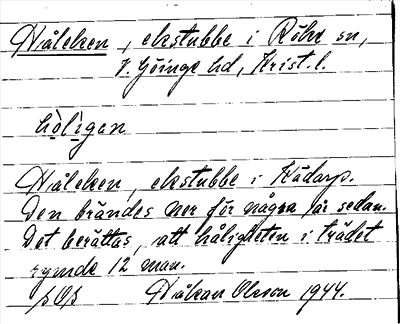 Håleken, ekstubbe i Röke sn,
V. Göinge hd, Krist. l.
hò̩lìgan
Håleken, ekstubbe i Kädarp.
Den brändes ner för några år sedan.
Det berättas, att håligheten i trädet
rymde 12 man.
Håkan Olsson 1944.